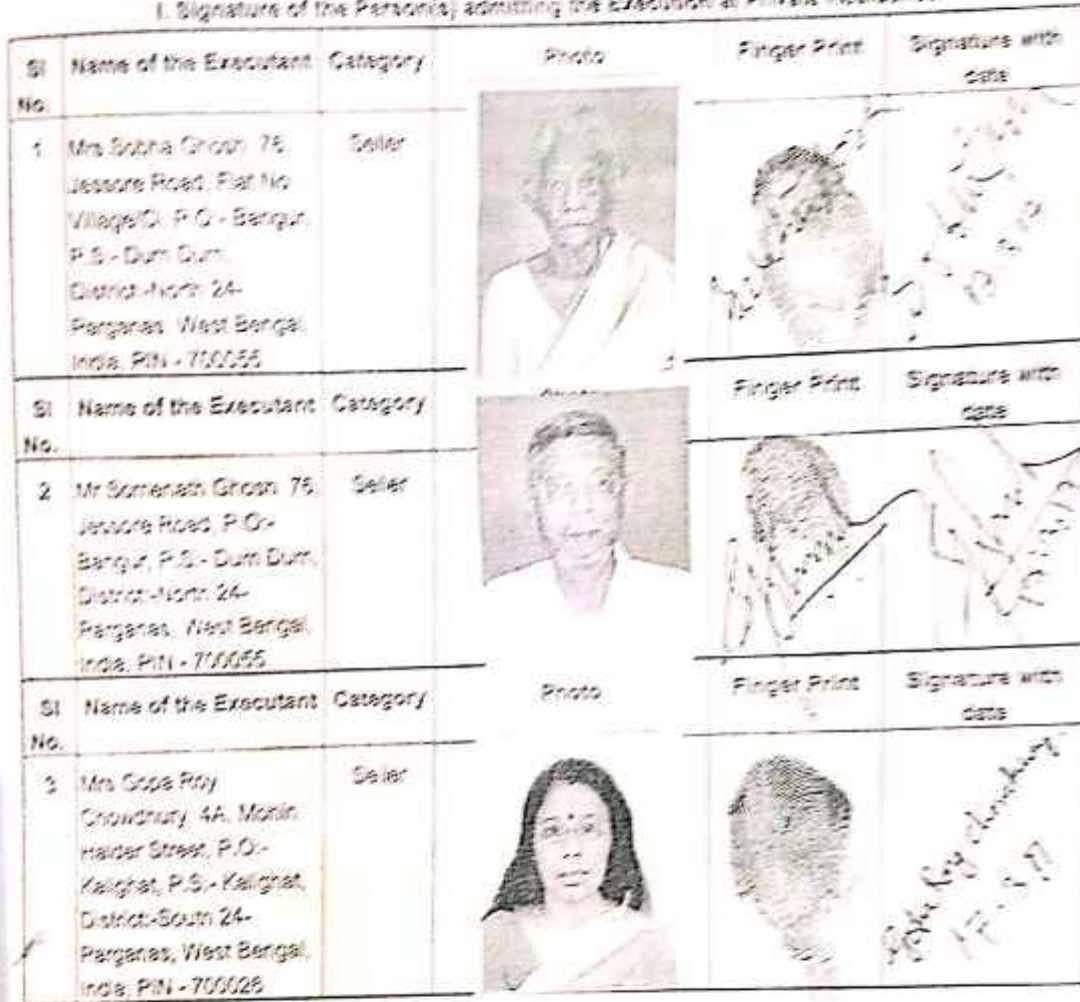 I. Signature of the Person(s) admitting the Execution at Private
Sl No. Name of the Executant Category Photo Finger Print Signature with date
1 Mrs Sobha Ghosh 76,
Jessore Road, Flat No
Village/Ci, P.O:- Bangur,
P.S:- Dum Dum,
District:-North 24-
Parganas, West Bengal,
India, PIN - 700055
Seller
Sl No. Name of the Executant Category Finger Print Signature with date
2 Mr Somenath Ghosh 76,
Jessore Road, P.O:-
Bangur, P.S:- Dum Dum,
District:-North 24-
Parganas, West Bengal,
India, PIN - 700055
Seller
Sl No. Name of the Executant Category Photo Finger Print Signature with date
3 Mrs Gopa Roy
Chowdhury 4A, Monin
Halder Street, P.O:-
Kalighat, P.S:- Kalighat,
District:-South 24-
Parganas, West Bengal,
India, PIN - 700026
Seller
Gopa Roy Chowdhury